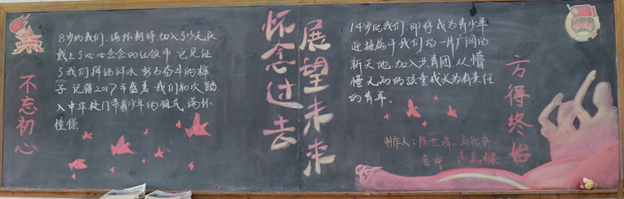 不忘初心
8岁的我们,满怀期待加入了少先队
戴上了心心念念的红领巾 它见证
了我们挥洒汗水 努力奋斗的样
子 记得2017年盛夏 我们初次踏
入中华校门 带着少年的稚气 满怀
憧憬
怀念过去
展望未来
14岁的我们,即将成为青少年
迎接属于我们的一片广阔的
新天地,加入共青团,从懵
懂无知的孩童成长为有责任
的青年。
方得终始
制作人: